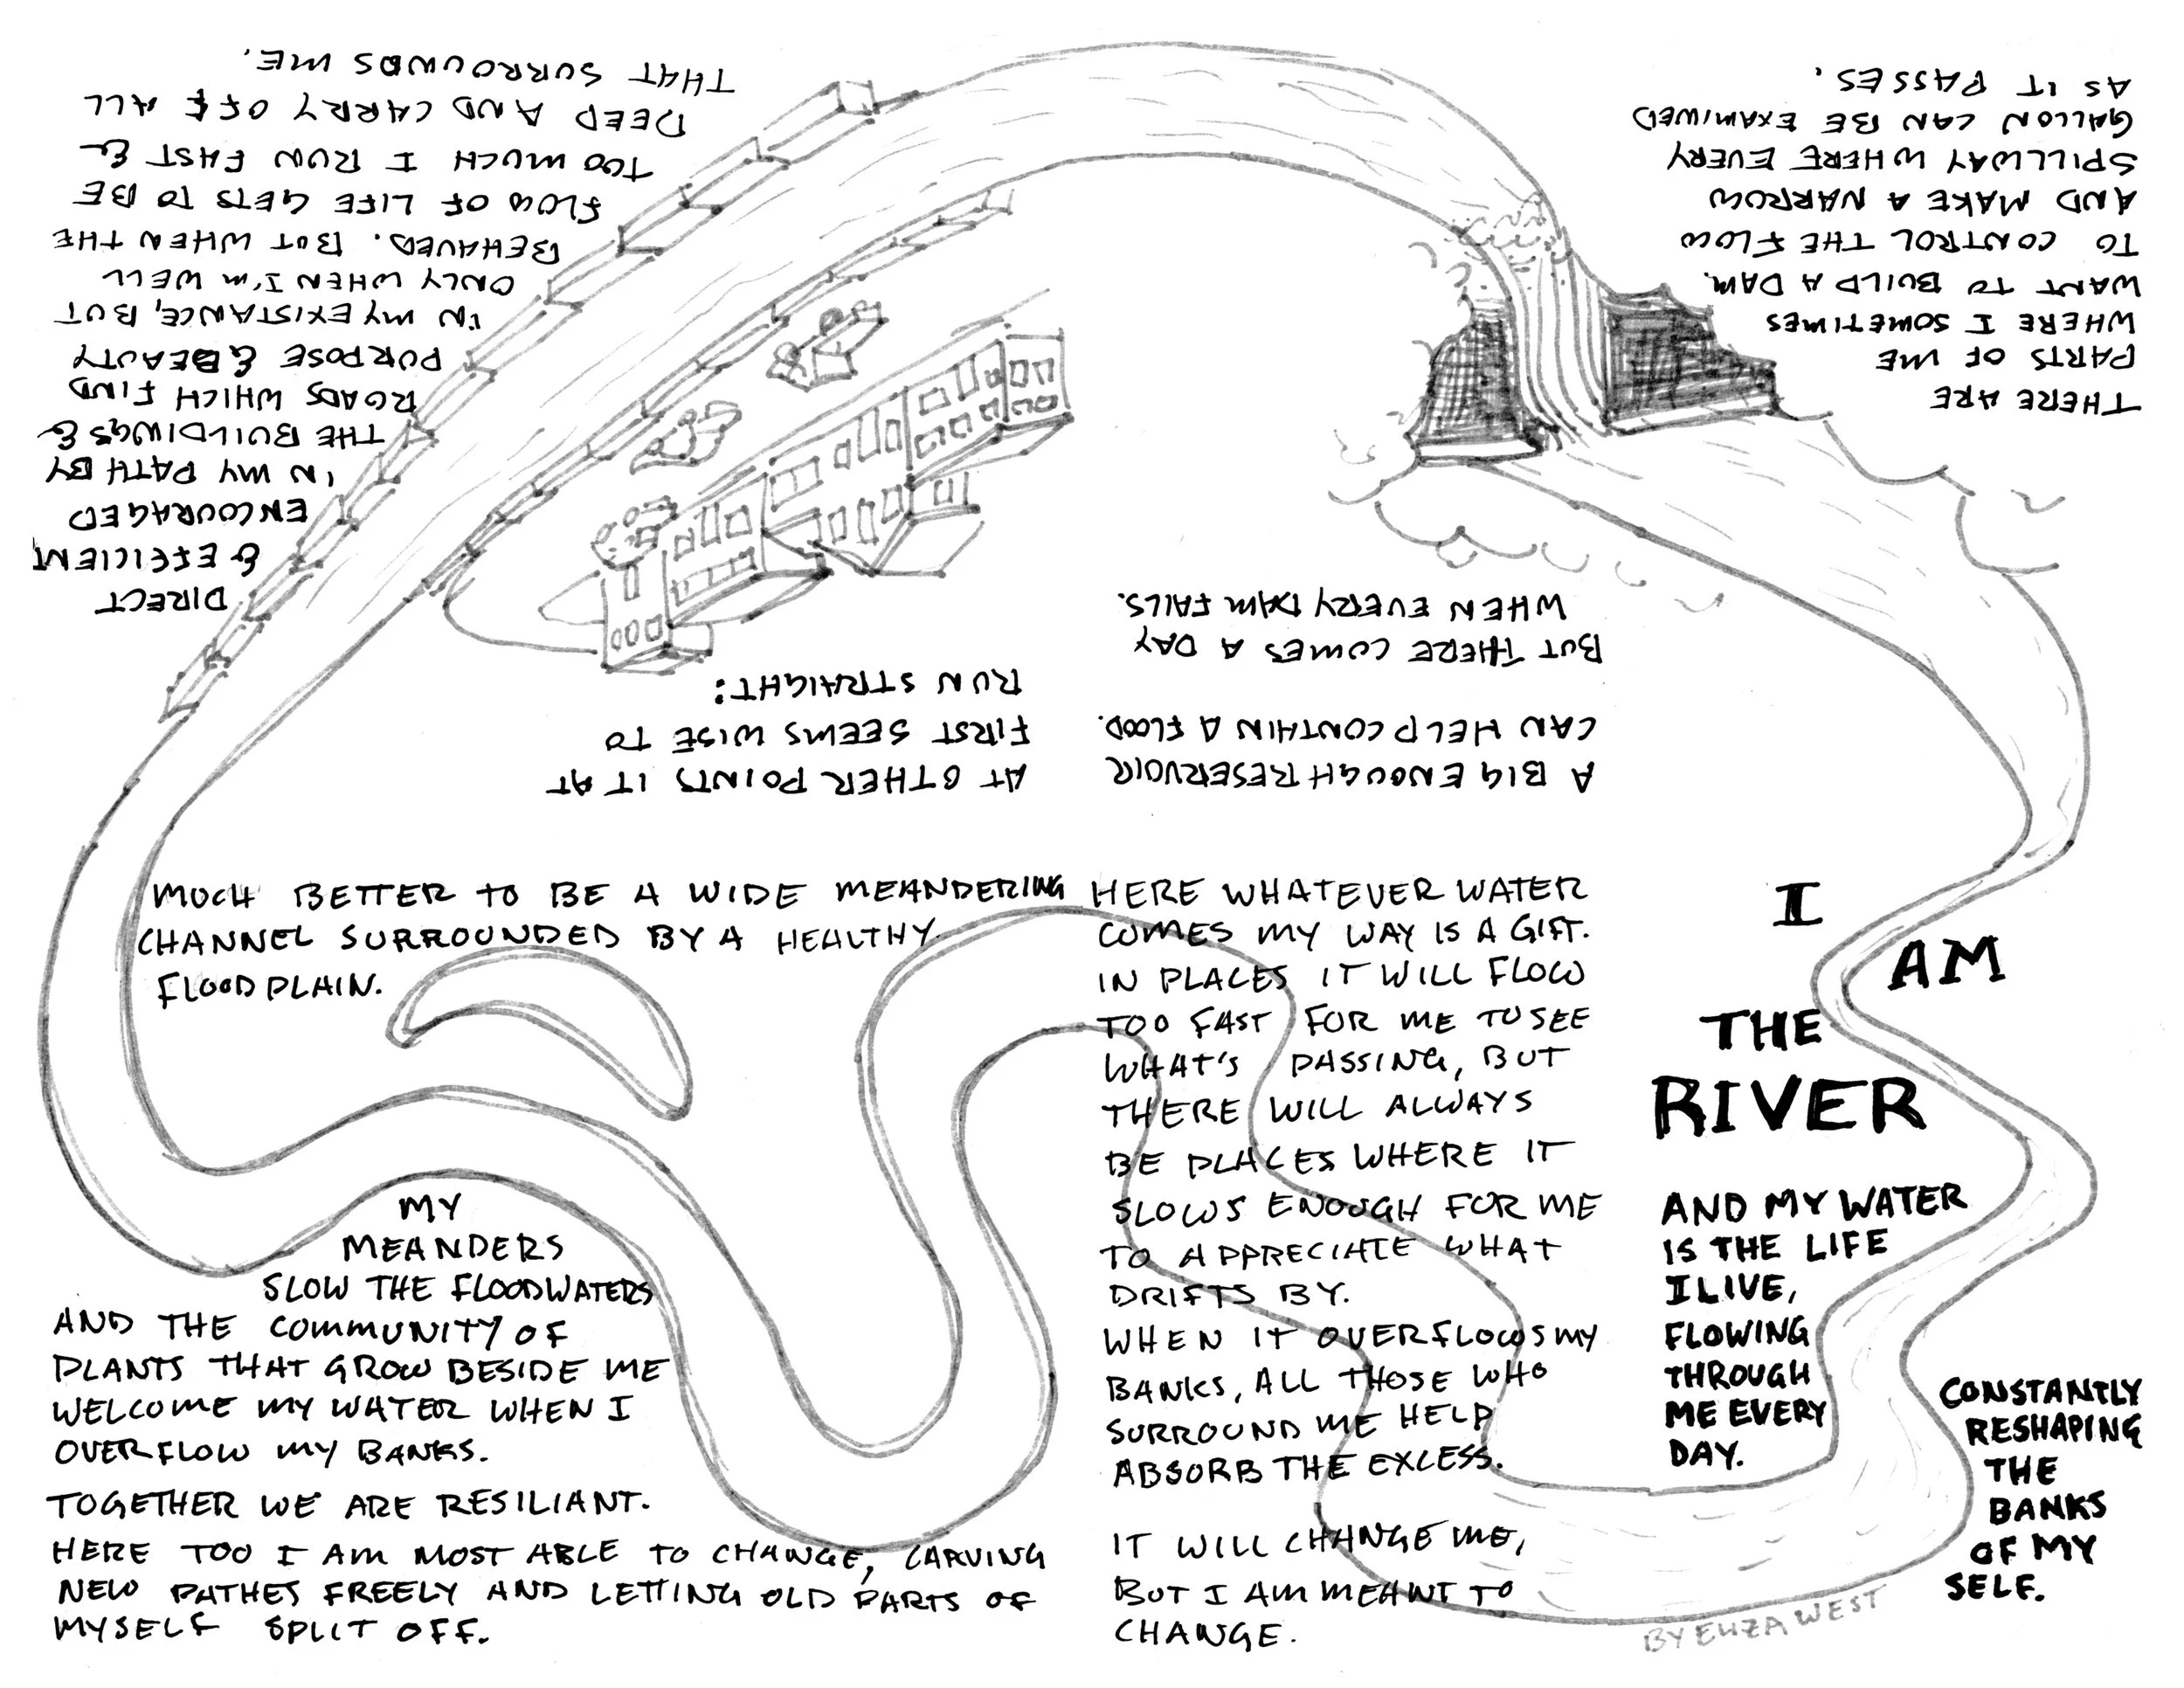 I
AM
THE
RIVER
AND MY WATER
IS THE LIFE
I LIVE,
FLOWING
THROUGH
ME EVERY
DAY.
CONSTANTLY
RESHAPING
THE
BANKS
OF MY
SELF.
BY ELIZA WEST
THERE ARE
PARTS OF ME
WHERE I SOMETIMES
WANT TO BUILD A DAM.
TO CONTROL THE FLOW
AND MAKE A NARROW
SPILLWAY WHERE EVERY
GALLON CAN BE EXAMINED
AS IT PASSES.
A BIG ENOUGH RESERVOIR
CAN HELP CONTAIN A FLOOD.
BUT THERE COMES A DAY
WHEN EVERY DAM FAILS.
AT OTHER POINTS IT AT
FIRST SEEMS WISE TO
RUN STRAIGHT:
DIRECT
& EFICIENT
ENCOURAGED
IN MY PATH BY
THE BUILDINGS &
ROADS WHICH FIND
PURPOSE & BEAUTY
IN MY EXISTANCE, BUT
ONLY WHEN I'M WELL
BEHAVED. BUT WHEN THE
FLOW OF LIFE GETS TO BE
TOO MUCH I RUN FAST &
DEEP AND CARRY OFF ALL
THAT SURROUNDS ME.
MUCH BETTER TO BE A WIDE MEANDERING
CHANNEL SURROUNDED BY A HEALTHY
FLOODPLAIN.
MY
MEANDERS
SLOW THE FLOODWATERS
AND THE COMMUNITY OF
PLANTS THAT GROW BESIDE ME
WELCOME MY WATER WHEN I
OVERFLOW MY BANKS.
TOGETHER WE ARE RESILIANT.
HERE TOO I AM MOST ABLE TO CHANGE, CARVING
NEW PATHES FREELY AND LETTING OLD PARTS OF
MYSELF SPLIT OFF.
HERE WHATEVER WATER
COMES MY WAY IS A GIFT.
IN PLACES IT WILL FLOW
TOO FAST FOR ME TO SEE
WHAT'S PASSING, BUT
THERE WILL ALWAYS
BE PLACES WHERE IT
SLOWS ENOUGH FOR ME
TO APPRECIATE WHAT
DRIFTS BY.
WHEN IT OVERFLOWS MY
BANKS, ALL THOSE WHO
SURROUND ME HELP
ABSORB THE EXCESS.
IT WILL CHANGE ME,
BUT I AM MEANT TO
CHANGE.